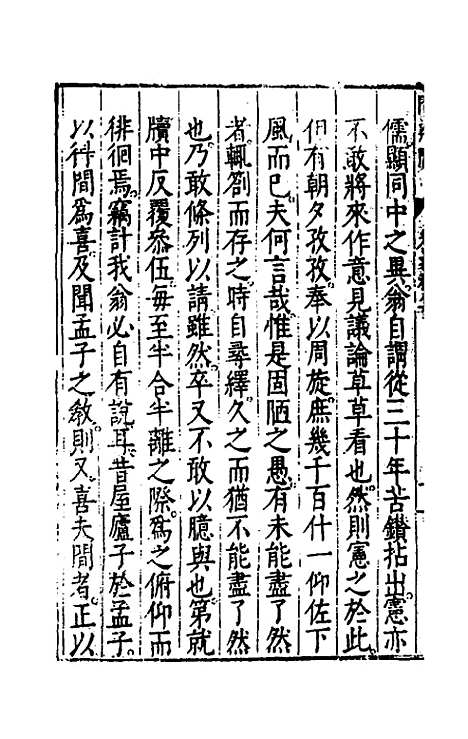 儒顯同中之異翁自謂從三十年苦鑽拈出憲亦
不敢將來作意見議論草草看也然則憲之於此
但有朝夕孜孜奉以周旋庶幾千百什一仰佐下
風而巳夫何言哉惟是固陋之愚有未能盡了然
者輒劄而存之時自尋繹久之而猶不能盡了然
也乃敢條列以請雖然卒又不敢以臆與也第就
牘中反覆叅伍每至半合半離之際爲之俯仰而
徘徊焉竊計我翁必自有說耳昔屋廬子於孟子
以得間爲喜及聞孟子之教則又喜夫間者正以